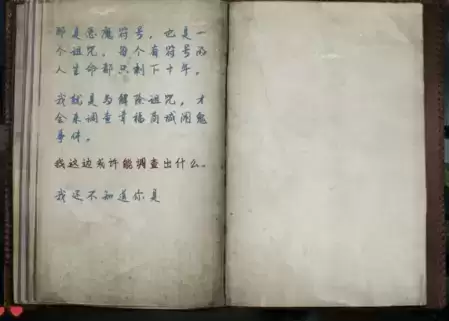 那是恶魔符号，也是一
个诅咒，每个有符号的
人生命都只剩下十年。
我就是为解除诅咒，才
会来调查幸福商城闹鬼
事件。
我这边或许能调查出什么。
我还不知道你是